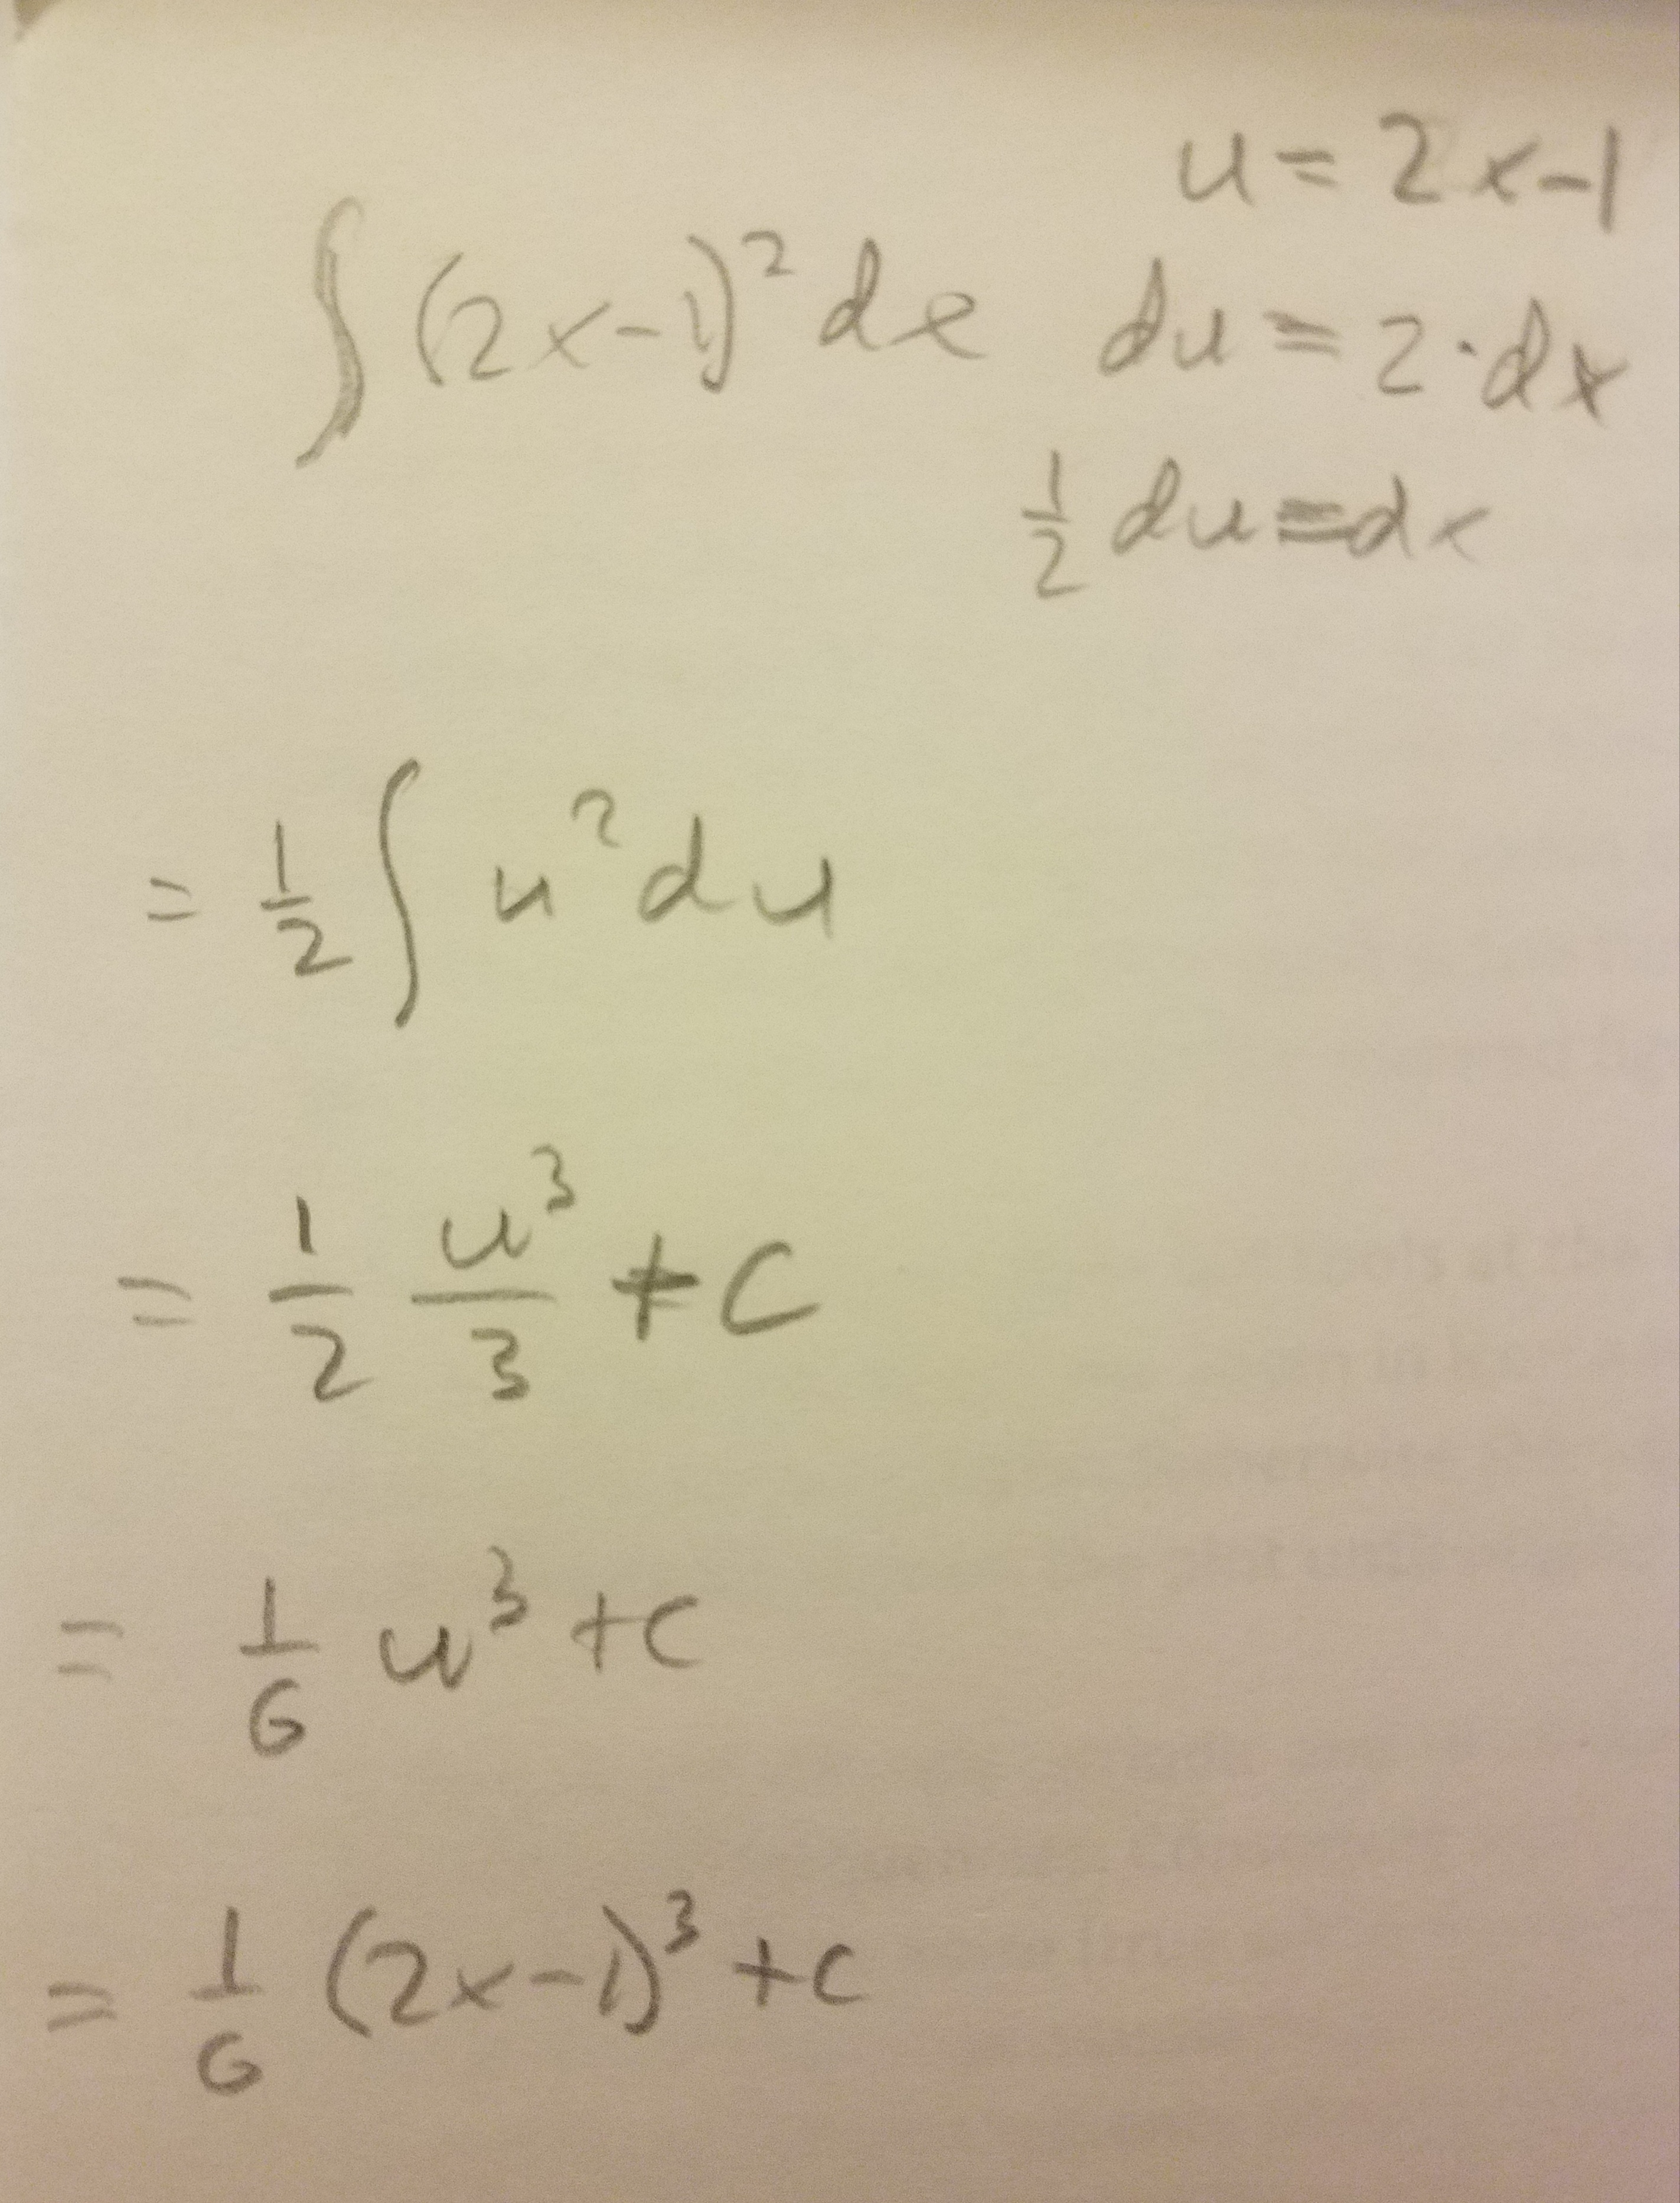 u = 2x-1
∫(2x-1)² dx
du = 2·dx
½ du = dx
= ½ ∫ u² du
= 1/2 u³/3 + C
= 1/6 u³ + C
= 1/6 (2x-1)³ + C